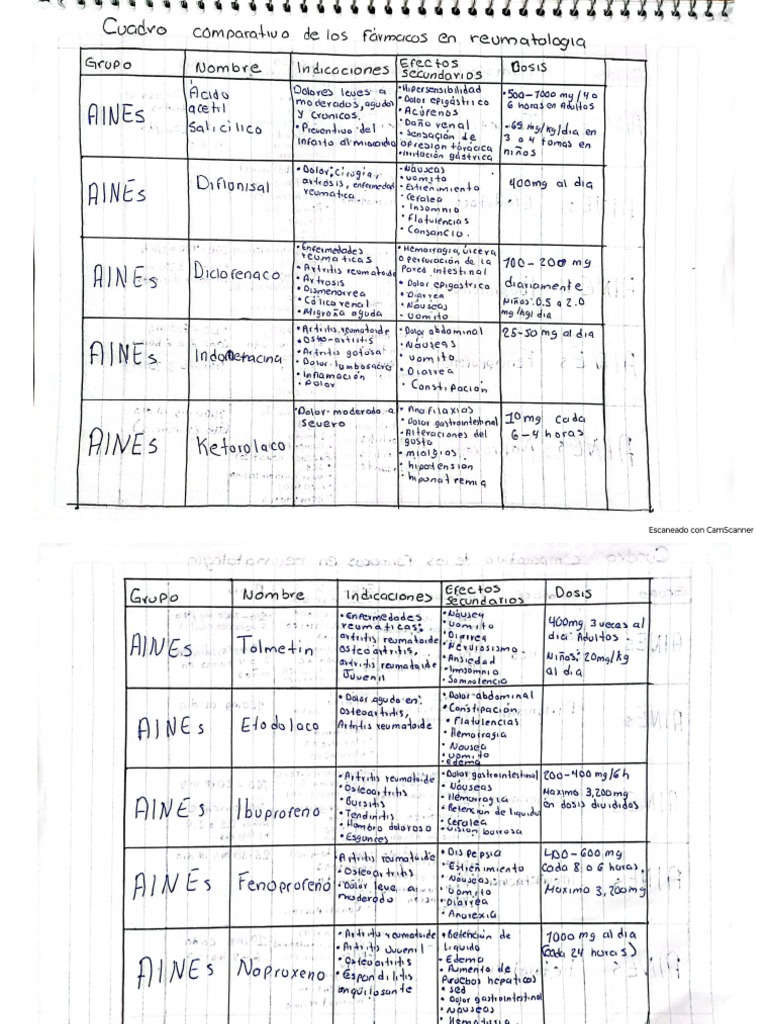 Cuadro comparativo de los fármacos en reumatologia
Grupo
Nombre
Indicaciones
Efectos
secundarios
Dosis
AINEs
Ácido
acetil
Salicilico
Dolores leves a
moderados, agudos
y cronicos.
• Preventivo del
infarto al miocardio
• Hipersensibilidad
• Dolor epigástrico
• Acúfenos
• Daño renal
• Sensación de
opresion torácica
• Irritación gástrica
• 500-1000 mg / 4 o
6 horas en Adultos
• 65 mg/kg/dia en
3 o 4 tomas en
niños
AINEs
Diflonisal
• Dolor, cirugia,
artrosis, enfermedad
reumatica.
• Náuseas
• vomito
• Estreñimiento
• Cefalea
• Insomnio
• Flatulencias
• Cansancio.
400mg al dia
AINEs
Diclofenaco
• Enfermedades
reumaticas
• Artritis reumatoide
• Artrosis
• Dismenorrea
• Cólico renal
• Migraña aguda
• Hemorragia, úlcera
o perforación de la
Pared intestinal
• Dolor epigastrico
• Diarrea
• Náuseas
• vomito
100-200 mg
diariamente
Niños: 0.5 a 2.0
mg/kg/dia
AINEs
Indometacina
• Artritis reumatoide
• Osteo-artritis
• Artritis gotosa
• Dolor lumbosacro
• Inflamación
• Dolor
• Dolor abdominal
• Náuseas
• vomito
• Diarea
• Constipación
25-50 mg al dia
AINEs
Ketorolaco
• Dolor-moderado a
severo
• Anafilaxias
• Dolor gastrointestinal
• Alteraciones del
gusto
• mialgias
• hipotensión
• hiponatremia
10mg cada
6-4 horas
Escaneado con CamScanner
Grupo
Nombre
Indicaciones
Efectos
secundarios
Dosis
AINEs
Tolmetin
• Enfermedades
reumáticas:
artritis reumatoide
osteoartritis,
artritis reumatoide
Juvenil
• Náusea
• vomito
• Diarrea
• Nerviosismo
• Ansiedad
• Imnsomnio
• Somnolencia
400mg 3 veces al
dia Adultos.
Niños: 20mg/kg
al dia
AINEs
Etodolaco
• Dolor agudo en:
osteoartritis,
Artritis reumatoide
• Dolor abdominal
• Constipación
• Flatulencias
• Hemorragia
• Nausea
• vomito
• edema
AINEs
Ibuprofeno
• Artritis reumatoide
• Osteoartritis
• Bursitis
• Tendinitis
• Hombro doloroso
• Esguinces
• Dolor gastrointestinal
• Náuseas
• Hémorragia
• Retención de liquidos
• Cefalea
• Visión borrosa
200-400 mg/6h
Maximo 3,200mg
en dosis divididas
AINEs
Fenoprofeno
• Artritis reumatoide
• Osteoartritis
• Dolor leve a
moderado
• Dispepsia
• Estreñimiento
• Náuseas
• Vomito
• Diarrea
• Anorexia
400-600 mg
Cada 8 o 6 horas.
Maximo 3,200mg
AINEs
Naproxeno
• Artritis reumatoide
• Artritis Juvenil
• Osteoartritis
• Espondilitis
anquilosante
• Retención de
liquido
• Edema
• Aumento de
Pruebas hepaticas
• sed
• Dolor gastrointestinal
• Náuseas
• Hematuria
1000 mg al dia
(cada 24 horas)